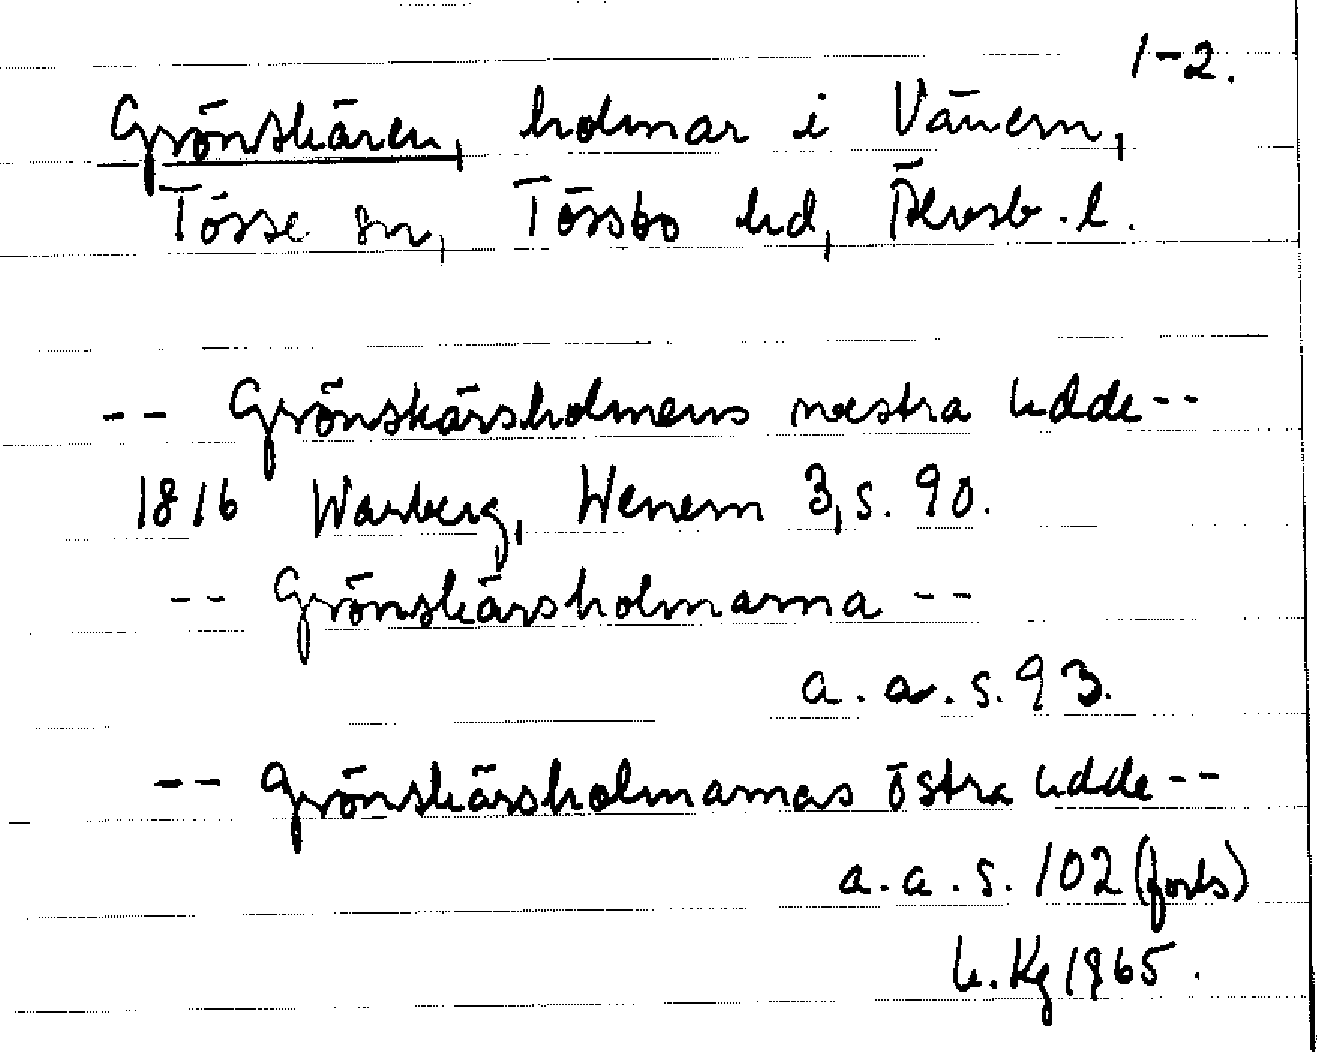 1-2.
Grönskären, holmar i Vänern,
Tösse sn, Tössbo hd, Älvsb. l.
-- Grönskärsholmens mestra udde --
1816 Warberg, Wenern 3, s. 90.
-- Grönskärsholmarna --
a. a. s. 93.
-- Grönskärsholmarnas östra udde --
a. a. s. 102 (forts)
Kg 1965.